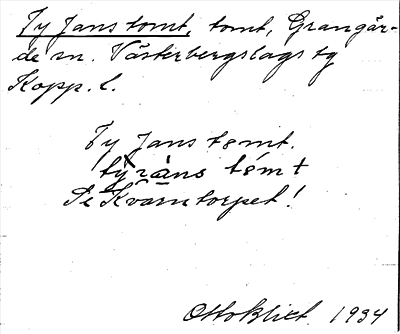 Ty Jans tomt, tomt, Grangär-
de sn. Västerbergslags tg
Kopp. l.
Ty Jans tomt.
tỳ ràns tómt
Se Kvarntorpet!
Otto Blixt. 1934